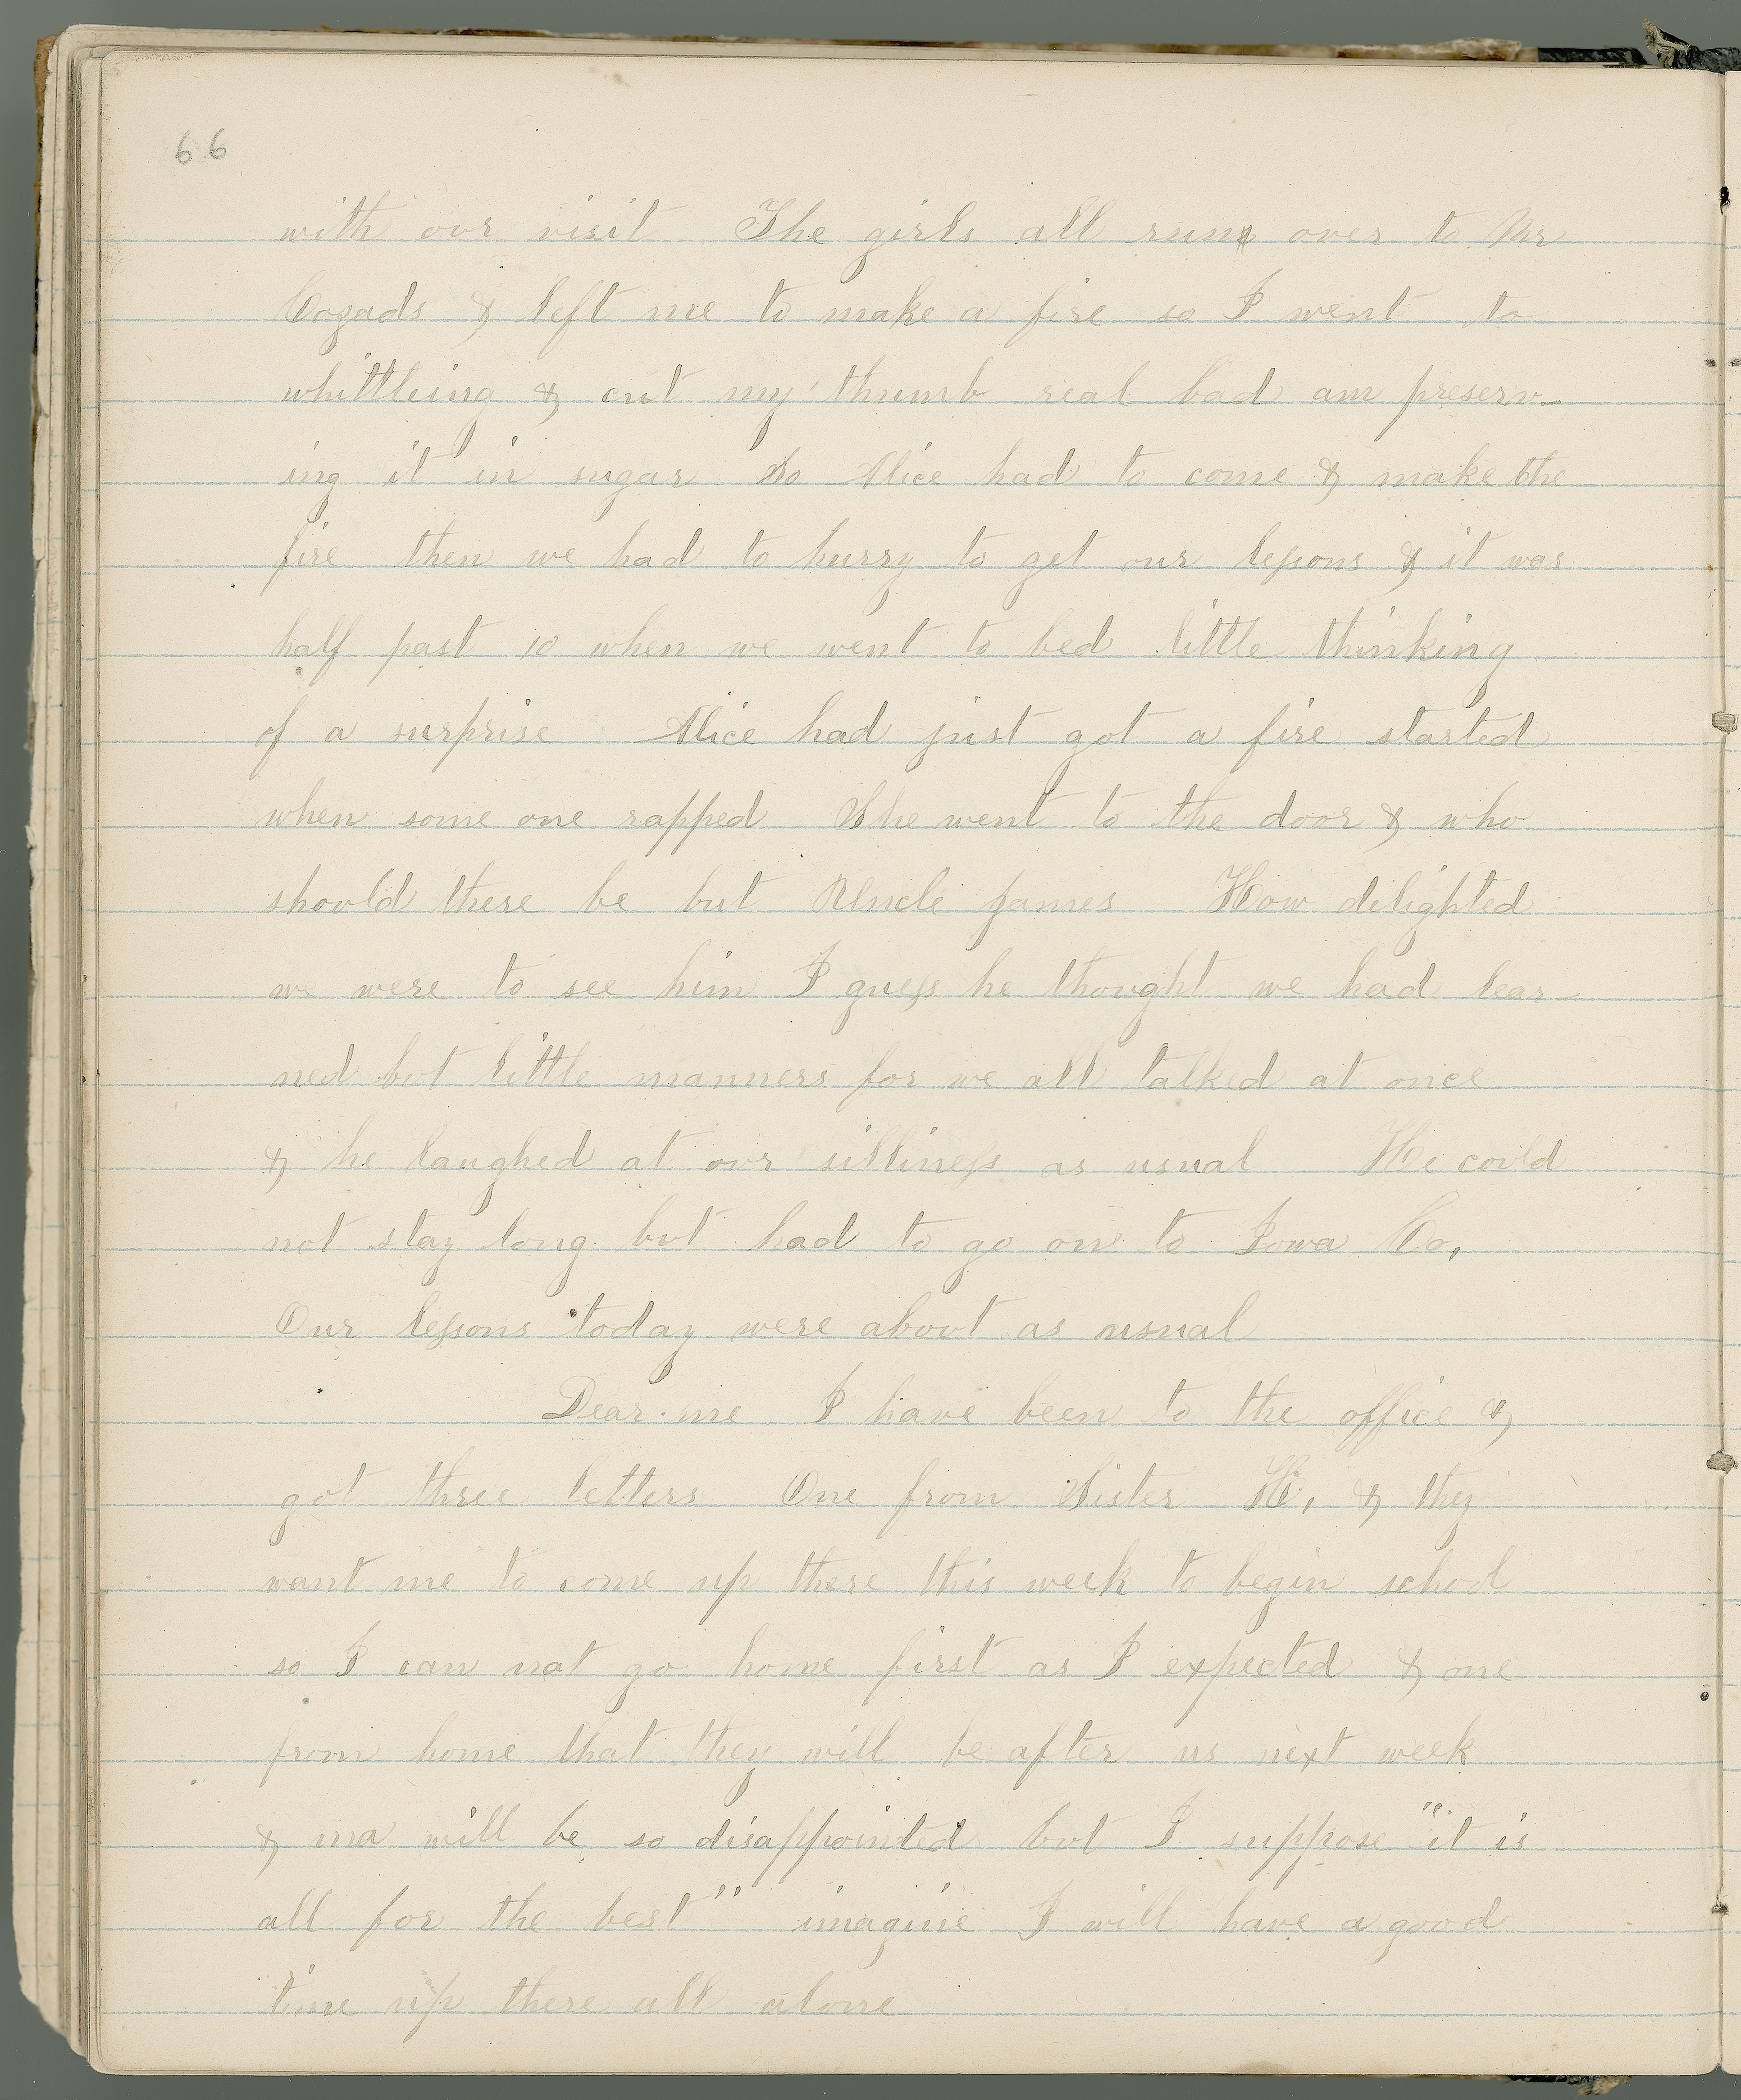 66
with our visit The girls all run over to Mr
Cozads & left me to make a fire so I went to
whittleing & cut my thumb real bad am preserv-
ing it in sugar So Alice had to come & make the
fire then we had to hurry to get our lessons & it was
half past 10 when we went to bed little thinking
of a surprise Alice had just got a fire started
when some one rapped She went to the door & who
should there be but Uncle James How delighted
we were to see him I guess he thought we had lear-
ned but little manners for we all talked at once
& he laughed at our silliness as usual He could
not stay long but had to go on to Iowa Co,
Our lessons today were about as usual
Dear me I have been to the office &
got three letters One from Sister H, & they
want me to come up there this week to begin school
so I can not go home first as I expected & one
from home that they will be after us next week
& ma will be so disappointed but I suppose "it is
all for the best" imagine I will have a good
time up there all alone